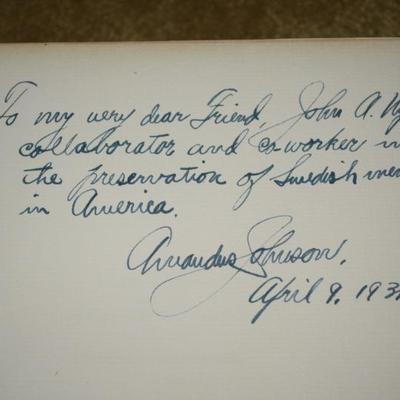 To my very dear Friend, John A.
collaborator and co-worker in
the preservation of Swedish
in America.
Amandus Johnson.
April 9, 193